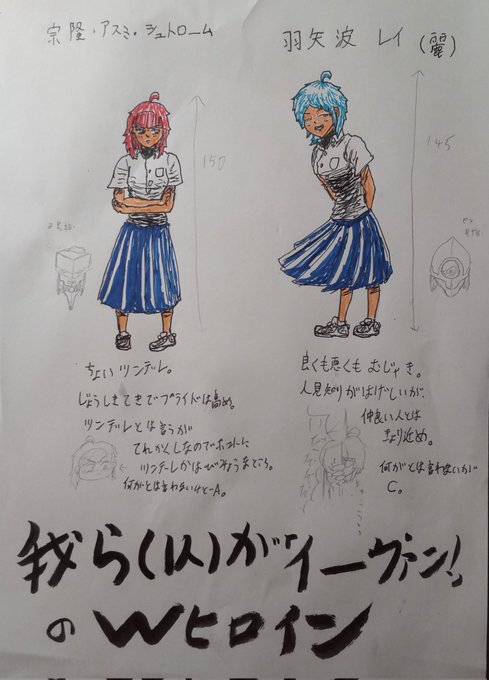 宗隆・アスミ・シュトローム
羽矢波 レイ(麗)
150
145
ちょいツンデレ。
じょうしきてきでプライドは高め。
ツンデレとは言うが
てれかくしなのでホントに
ツンデレかはびみょうなところ。
何がとは言わないけどA。
良くも悪くもむじゃき。
人見知りがはげしいが、
仲良い人とは
きょり近め。
何がとは言わないが
C。
我ら(仏)がイーヴァン!
のWヒロイン